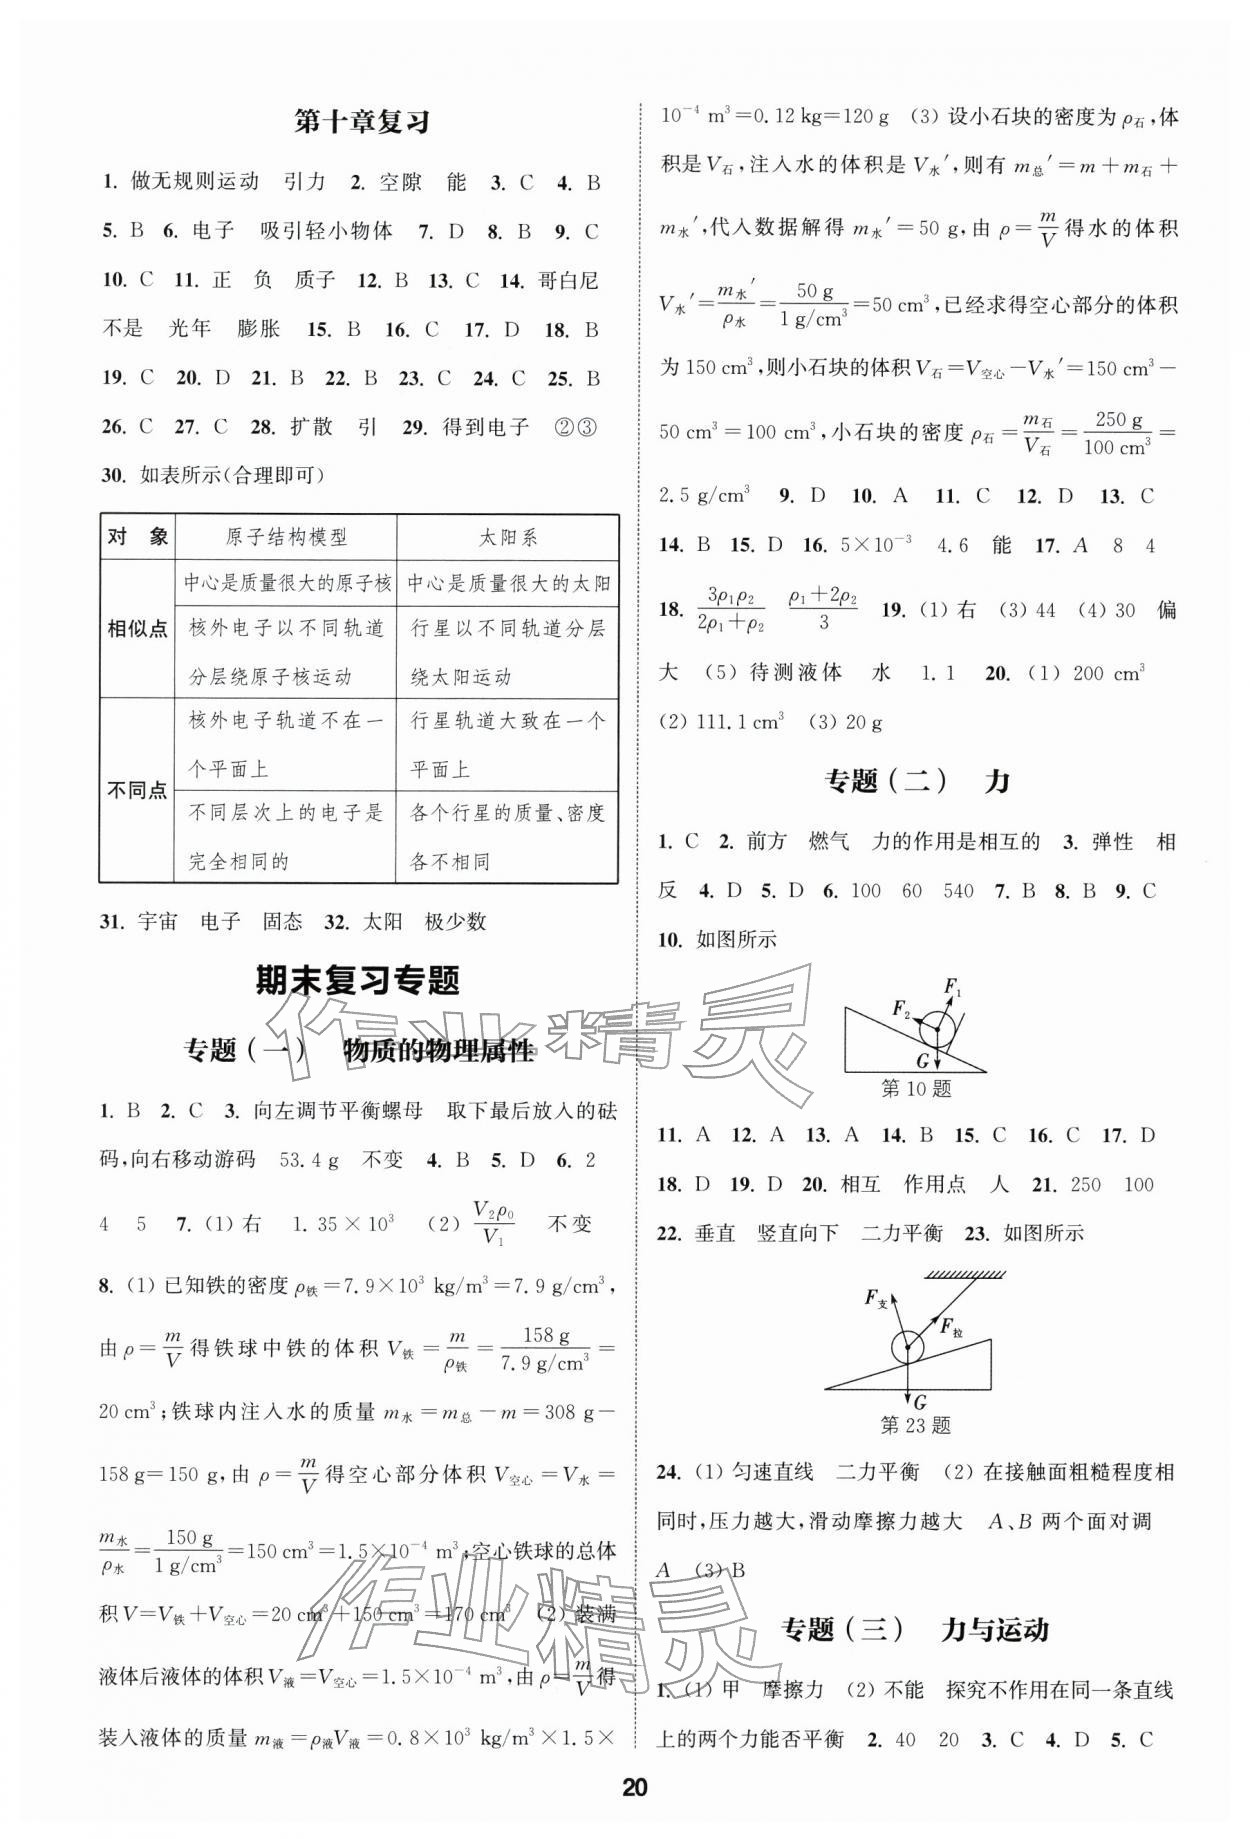 第十章复习
1. 做无规则运动　引力　2. 空隙　能　3. C　4. B
5. B　6. 电子　吸引轻小物体　7. D　8. B　9. C
10. C　11. 正　负　质子　12. B　13. C　14. 哥白尼
不是　光年　膨胀　15. B　16. C　17. D　18. B
19. C　20. D　21. B　22. B　23. C　24. C　25. B
26. C　27. C　28. 扩散　引　29. 得到电子　②③
30. 如表所示(合理即可)
对　象　原子结构模型　太阳系
相似点　中心是质量很大的原子核　中心是质量很大的太阳
核外电子以不同轨道分层绕原子核运动　行星以不同轨道分层绕太阳运动
不同点　核外电子轨道不在一个平面上　行星轨道大致在一个平面上
不同层次上的电子是完全相同的　各个行星的质量、密度各不相同
31. 宇宙　电子　固态　32. 太阳　极少数
期末复习专题
专题(一)　物质的物理属性
1. B　2. C　3. 向左调节平衡螺母　取下最后放入的砝
码,向右移动游码　53.4 g　不变　4. B　5. D　6. 2
4　5　7. (1)右　1.35×10³　(2) V₂ρ₀/V₁　不变
8. (1)已知铁的密度 ρ铁=7.9×10³ kg/m³=7.9 g/cm³,
由 ρ=m/V 得铁球中铁的体积 V铁=m/ρ铁=158 g/7.9 g/cm³=
20 cm³;铁球内注入水的质量 m水=m总-m=308 g-
158 g=150 g,由 ρ=m/V 得空心部分体积 V空心=V水=
m水/ρ水=150 g/1 g/cm³=150 cm³=1.5×10⁻⁴ m³;空心铁球的总体
积 V=V铁+V空心=20 cm³+150 cm³=170 cm³　(2)装满
液体后液体的体积 V液=V空心=1.5×10⁻⁴ m³,由 ρ=m/V 得
装入液体的质量 m液=ρ液V液=0.8×10³ kg/m³×1.5×
10⁻⁴ m³=0.12 kg=120 g　(3)设小石块的密度为 ρ石,体
积是 V石,注入水的体积是 V水′,则有 m总′=m+m石+
m水′,代入数据解得 m水′=50 g,由 ρ=m/V 得水的体积
V水′=m水′/ρ水=50 g/1 g/cm³=50 cm³,已经求得空心部分的体积
为 150 cm³,则小石块的体积 V石=V空心-V水′=150 cm³-
50 cm³=100 cm³,小石块的密度 ρ石=m石/V石=250 g/100 cm³=
2.5 g/cm³　9. D　10. A　11. C　12. D　13. C
14. B　15. D　16. 5×10⁻³　4.6　能　17. A　8　4
18. 3ρ₁ρ₂/2ρ₁+ρ₂　ρ₁+2ρ₂/3　19. (1)右　(3)44　(4)30　偏
大　(5)待测液体　水　1.1　20. (1)200 cm³
(2)111.1 cm³　(3)20 g
专题(二)　力
1. C　2. 前方　燃气　力的作用是相互的　3. 弹性　相
反　4. D　5. D　6. 100　60　540　7. B　8. B　9. C
10. 如图所示
F₁
F₂
G
第10题
11. A　12. A　13. A　14. B　15. C　16. C　17. D
18. D　19. D　20. 相互　作用点　人　21. 250　100
22. 垂直　竖直向下　二力平衡　23. 如图所示
F支
F拉
G
第23题
24. (1)匀速直线　二力平衡　(2)在接触面粗糙程度相
同时,压力越大,滑动摩擦力越大　A、B 两个面对调
A　(3)B
专题(三)　力与运动
1. (1)甲　摩擦力　(2)不能　探究不作用在同一条直线
上的两个力能否平衡　2. 40　20　3. C　4. D　5. C
20
作业精灵
作业精灵